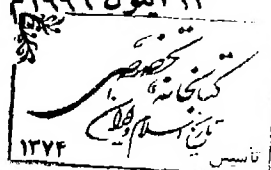 ۱۹۹۹م
کتابخانه تخصصی
تاریخ اسلام و ایران
۱۳۷۴
تأسیس